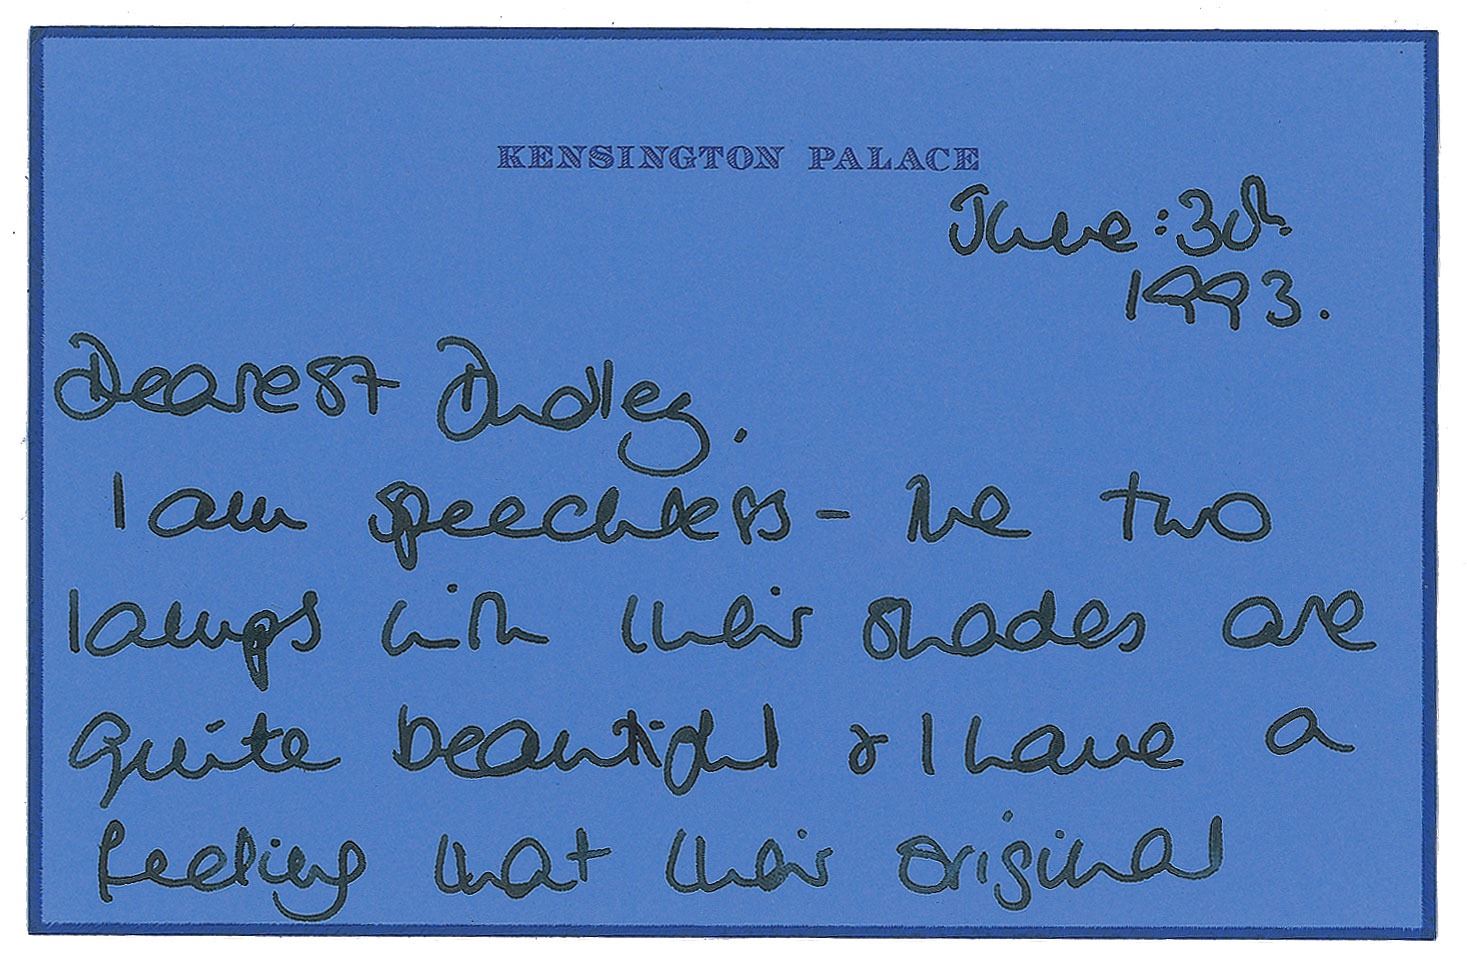 KENSINGTON PALACE
June: 30th.
1993.
Dearest Dudley.
I am speechless - the two
lamps with their shades are
quite beautiful & I have a
feeling that their original